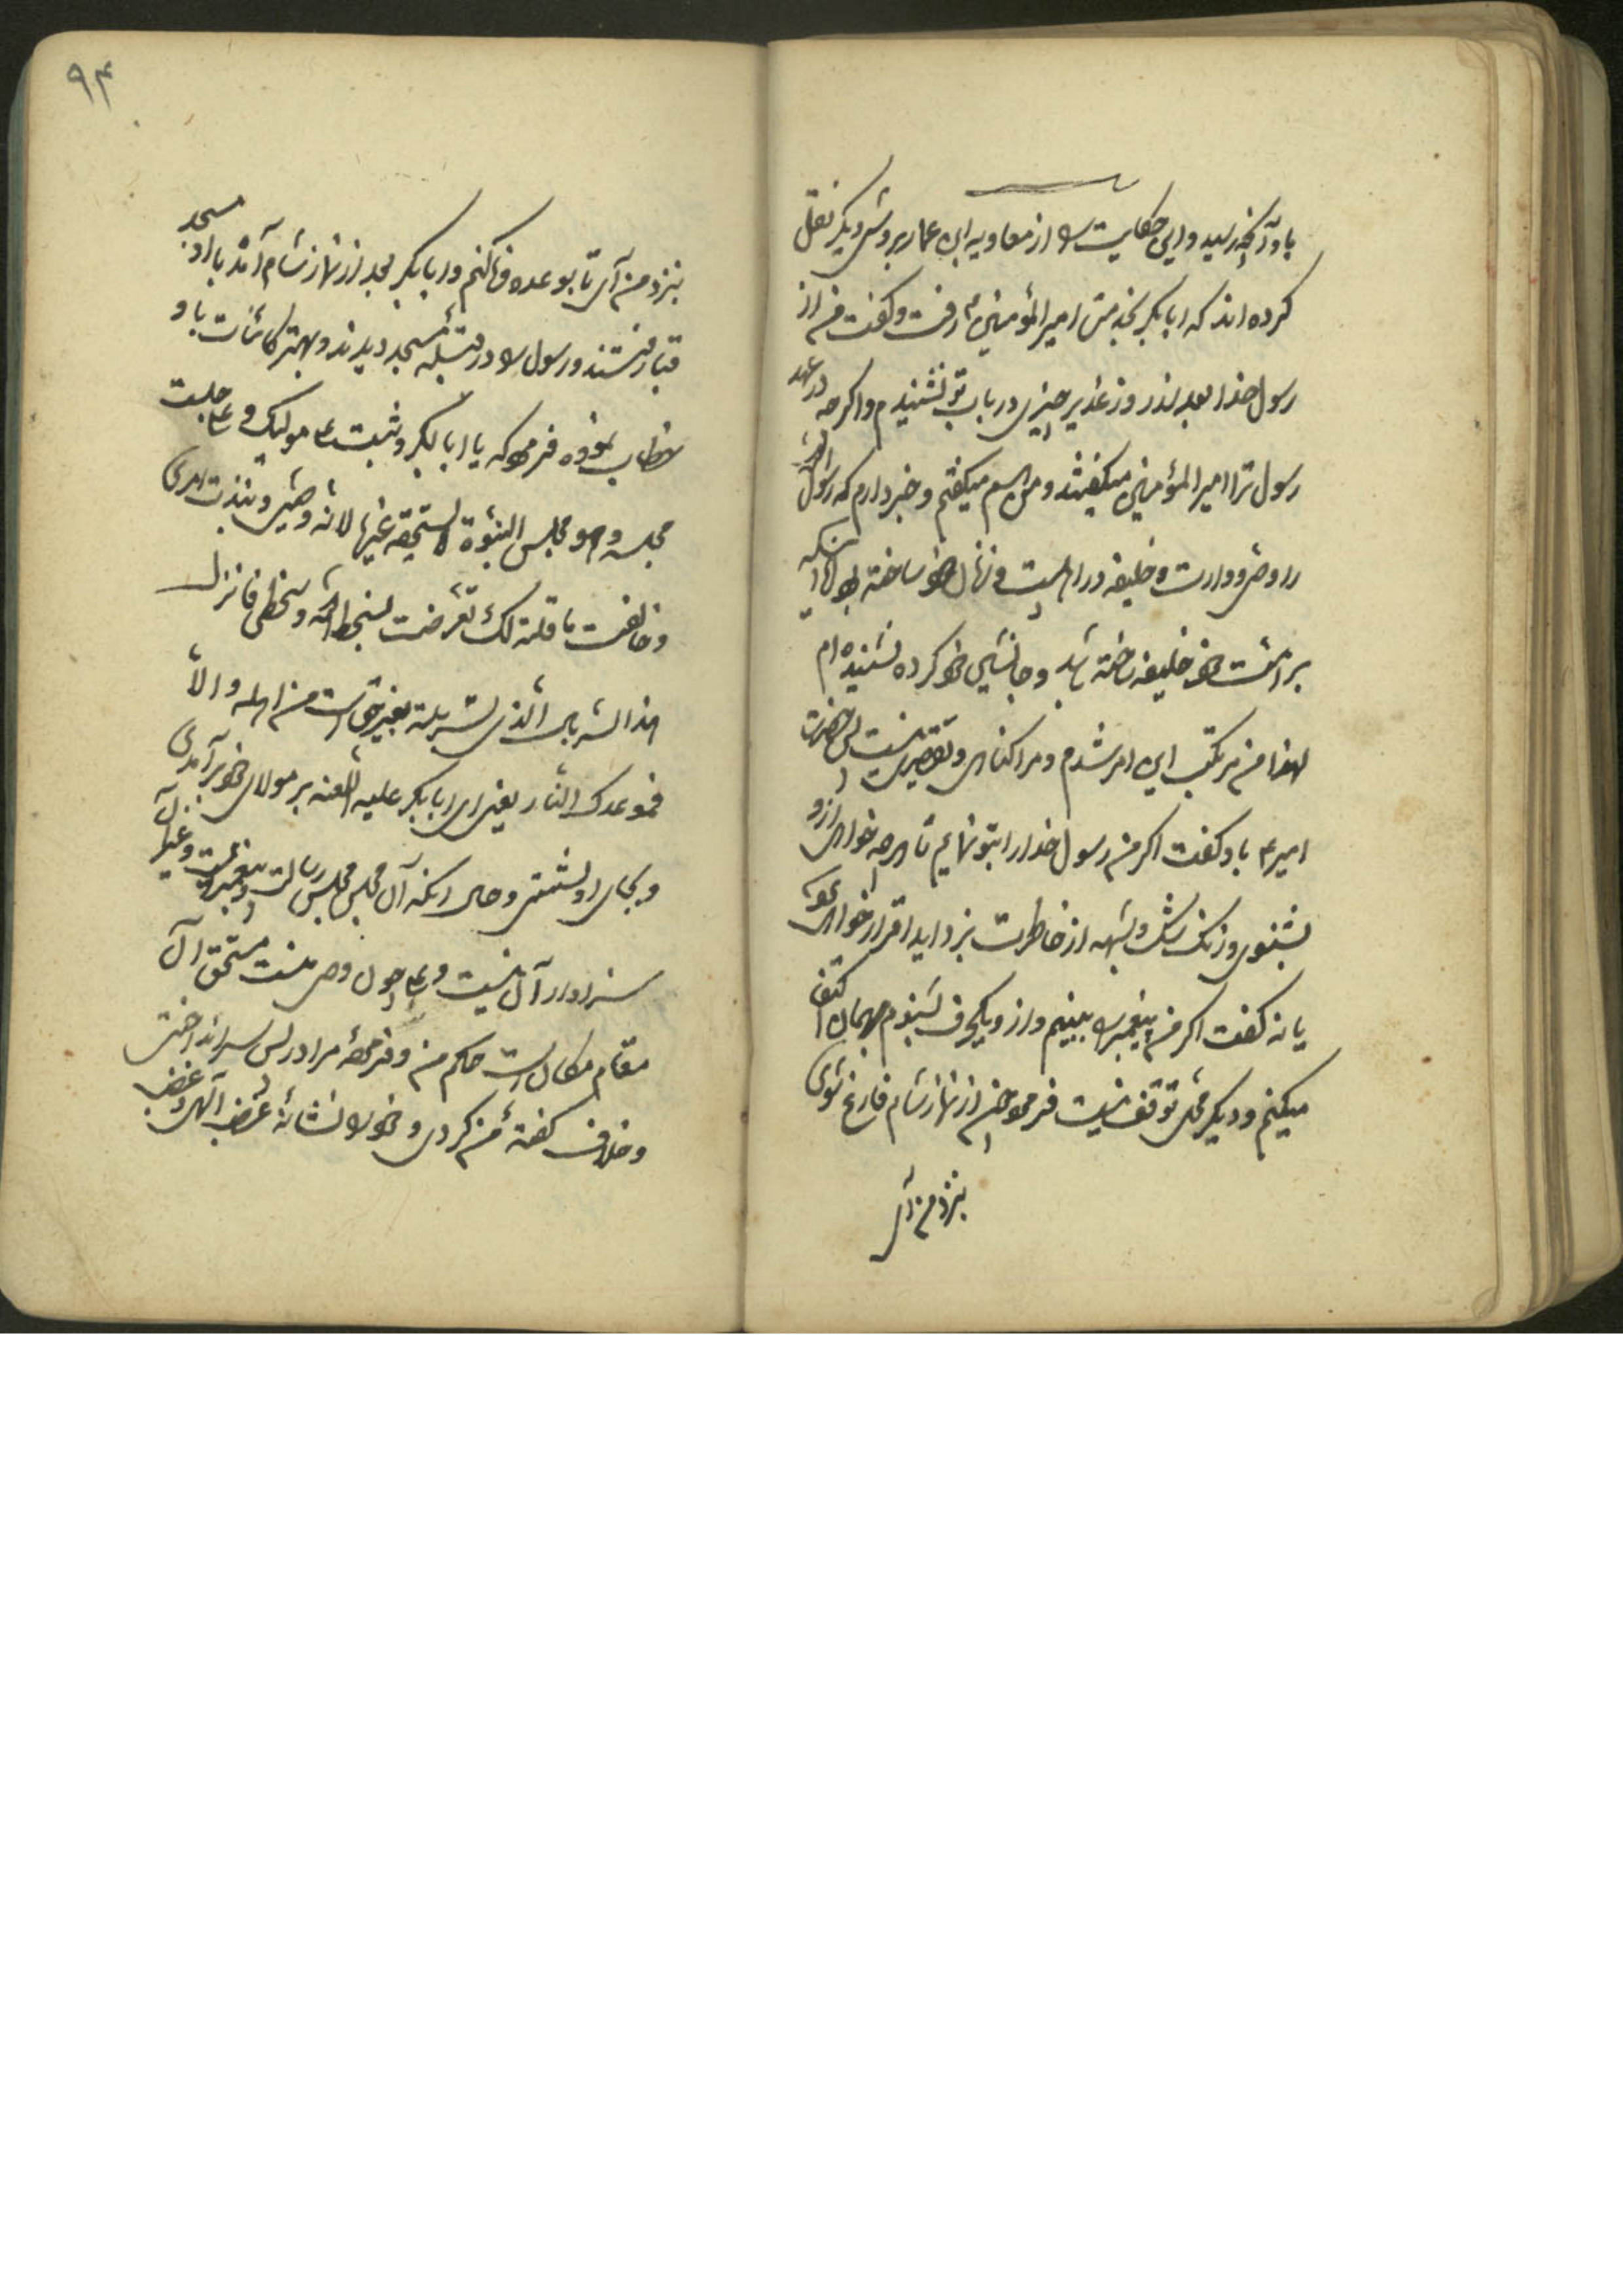 باو آنچه رسید و این حکایت را از معاویه ابن عمار بروش دیگر نقل
کرده اند که ابابکر بخدمت امیر المؤمنین ع رفت و گفت من از
رسول خدا بعد از روز غدیر چیزی در باب تو نشنیدم و اگرچه در عهد
رسول ترا امیر المؤمنین میگفتند و من هم میگفتم و خبر دارم که رسول
را وصی و وارث و خلیفه در اهلبیت و زنان خود ساخته بود اما اینکه
بر امت خود خلیفه ساخته باشد و جانشین خود کرده نشنیده ام
لهذا من مرتکب این امر شدم و مرا گناهی و تقصیری نیست پس حضرت
امیر ع باو گفت اگر من رسول خدا را بتو نمایم تا هرچه خواهی ازو
بشنوی و زنک شک و شبهه از خاطرت بزداید اقرار خواهی نمود
یا نه گفت اگر من پیغمبر را ببینم و ازو یکحرف بشنوم بهمان اکتفا
میکنم و دیگر محل توقف نیست فرمود چون از نماز شام فارغ شوی
بنزد من آی
۹۴
بنزد من آی تا بوعده وفا کنم و ابابکر بعد از نماز شام آمد با او بمسجد
قبا رفتند و رسول را در قبله مسجد دیدند و بهتر کائنات باو
خطاب نموده فرمود که یا ابابکر وثبت علی مولیک و جلست
مجلسه و هو مجلس النبوة لا یستحقه غیره لانه وصیی و نبذت امری
و خالفت ما قلته لک و تعرضت لسخط الله و سخطی فانزل
هذا السربال الذی تسربلته بغیر حق است من اهله والا
فموعدک النار یعنی ای ابابکر علیه اللعنه بر مولای خود برآمدی
و بجای او نشستی و حال آنکه آن مجلس مجلس رسالت و پیغمبریست و غیر آن
سزاوار آن نیست و علی چون وصی منست مستحق آن
مقام و مکان است حکم من و فرموده مرا در پس سر انداختی
و خلاف گفته من کردی و خود را نشانه غضب الهی و غضب